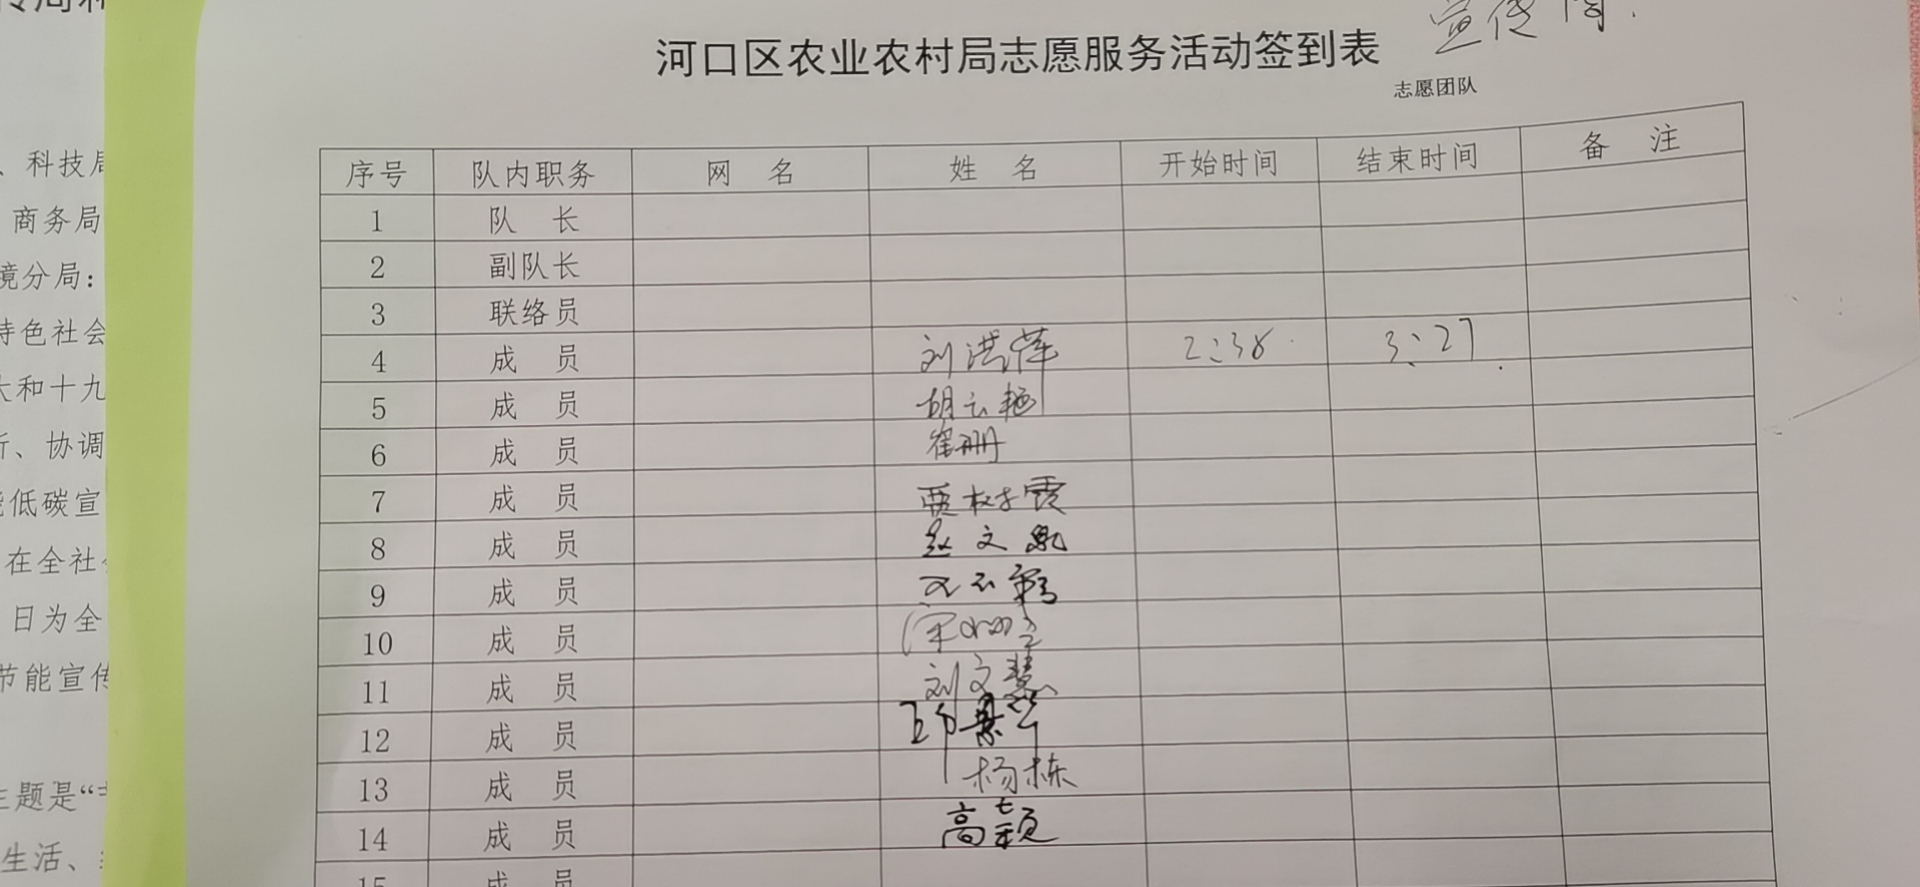 、科技局
商务局
境分局：
特色社会
大和十九
新、协调
能低碳宣
在全社会
日为全
节能宣传
主题是“
生活、
宣传
河口区农业农村局志愿服务活动签到表
志愿团队
序号 队内职务 网 名 姓 名 开始时间 结束时间 备 注
1 队 长
2 副队长
3 联络员
4 成 员 刘洪萍 2:38 3:27
5 成 员 胡云艳
6 成 员 崔珊
7 成 员 贾树霞
8 成 员 赵文
9 成 员
10 成 员
11 成 员 刘文慧
12 成 员
13 成 员 杨栋
14 成 员 高颖
15 成 员